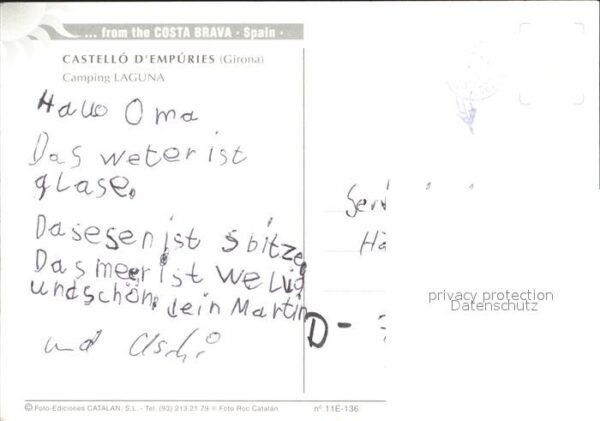 ... from the COSTA BRAVA · Spain ·
CASTELLÓ D'EMPÚRIES (Girona)
Camping LAGUNA
Hallo Oma
Das weter ist
glase.
Das esen ist sbitze
Das meer ist wellig
und schön. dein Martin
und Uschi
D -
privacy protection
Datenschutz
© Foto-Ediciones CATALAN, S.L. - Tel. (93) 213 21 79 ® Foto Roc Catalán
nº 11E-136